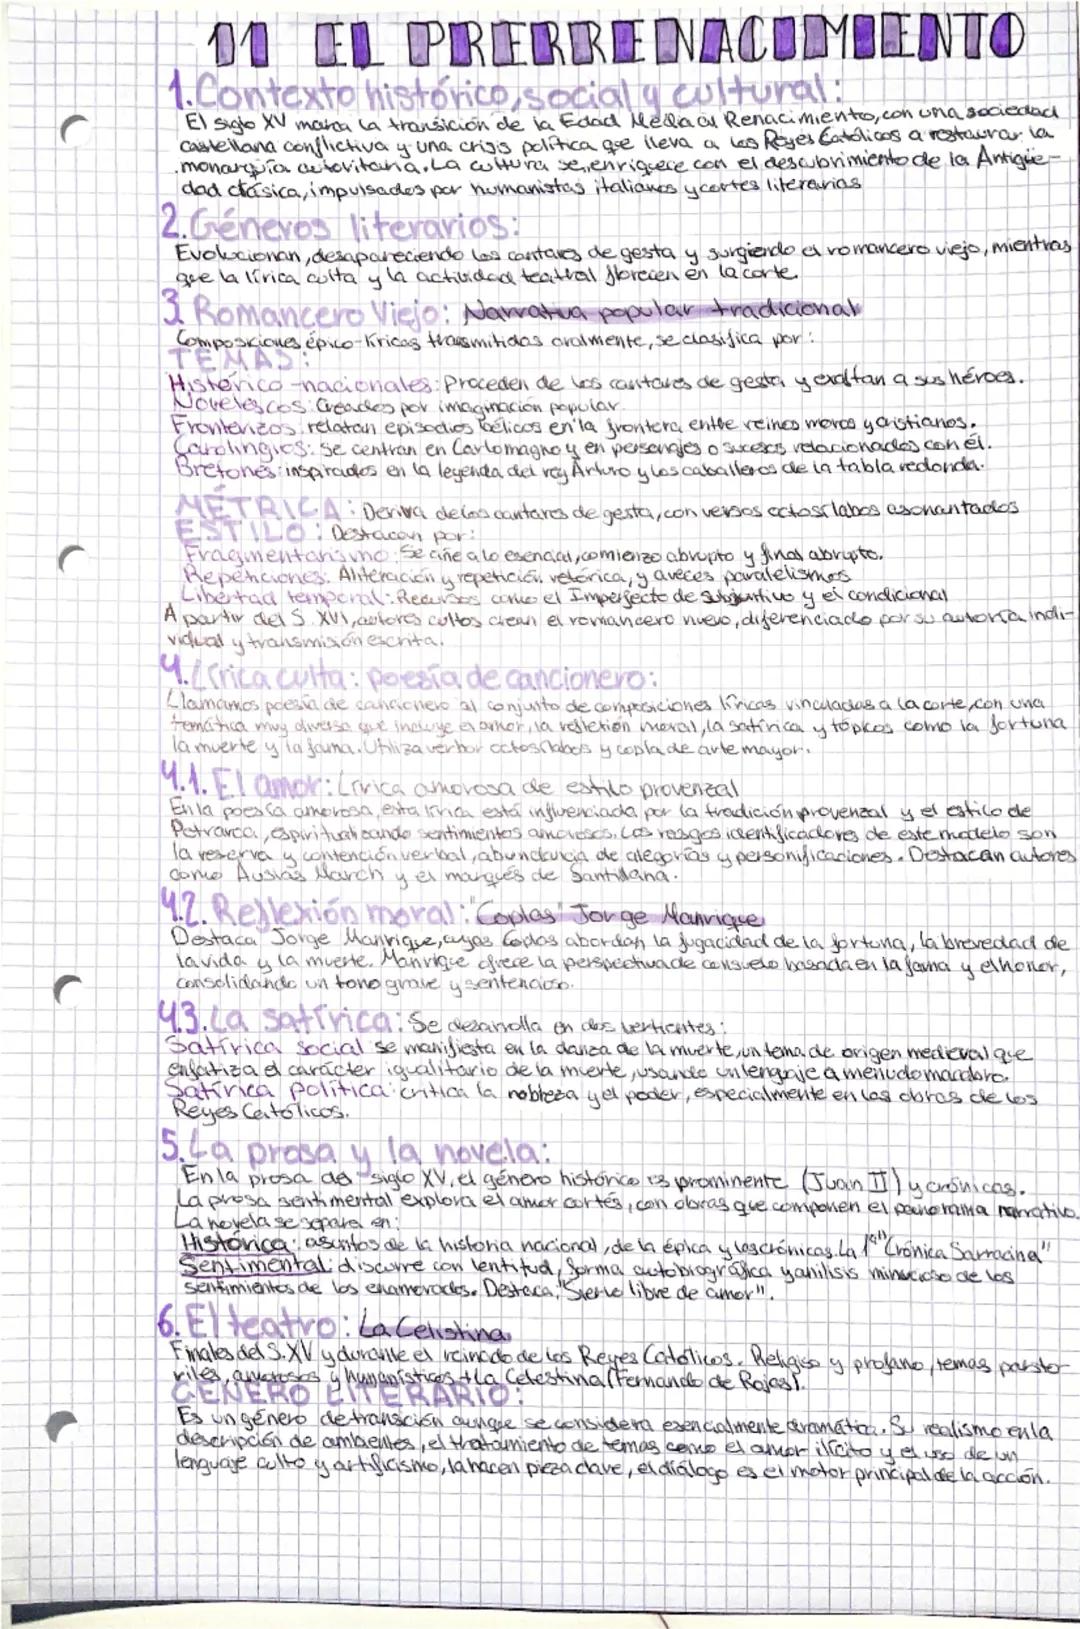 11 EL PRERRENACIMIENTO
1. Contexto histórico, social y cultural:
El siglo XV marca la transición de la Edad Media al Renacimiento, con una sociedad
castellana conflictiva y una crisis política que lleva a los Reyes Católicos a restaurar la
monarquía autoritaria. La cultura se enriquece con el descubrimiento de la Antigüe-
dad clásica, impulsados por humanistas italianos y cortes literarias
2. Géneros literarios:
Evolucionan, desapareciendo los cantares de gesta y surgiendo el romancero viejo, mientras
que la lírica culta y la actividad teatral florecen en la corte.
3. Romancero Viejo: Narrativa popular tradicional
Composiciones épico-líricas transmitidas oralmente, se clasifica por:
TEMAS:
Histórico-nacionales: Proceden de los cantares de gesta y exaltan a sus héroes.
Novelescos: Creados por imaginación popular.
Fronterizos: relatan episodios bélicos en la frontera entre reinos moros y cristianos.
Carolingios: se centran en Carlomagno y en personajes o sucesos relacionados con él.
Bretones: inspirados en la leyenda del rey Arturo y los caballeros de la tabla redonda.
MÉTRICA: Deriva de los cantares de gesta, con versos octosílabos asonantados
ESTILO: Destacan por:
Fragmentarismo: Se ciñe a lo esencial, comienzo abrupto y final abrupto.
Repeticiones: Aliteración y repetición retórica, y a veces paralelismos
Libertad temporal: Recursos como el Imperfecto de subjuntivo y el condicional
A partir del S. XVI, autores cultos crean el romancero nuevo, diferenciado por su autoría indi-
vidual y transmisión escrita.
4. Lírica culta: poesía de cancionero:
Llamamos poesía de cancionero al conjunto de composiciones líricas vinculadas a la corte, con una
temática muy diversa que incluye el amor, la reflexión moral, la satírica y tópicos como la fortuna
la muerte y la fama. Utiliza verhor octosílabos y copla de arte mayor.
4.1. El amor: Lírica amorosa de estilo provenzal
En la poesía amorosa, esta lírica está influenciada por la tradición provenzal y el estilo de
Petrarca, espiritualizando sentimientos amorosos. Los rasgos identificadores de este modelo son
la reserva y contención verbal, abundancia de alegorías y personificaciones. Destacan autores
como Ausiàs March y el marqués de Santillana.
4.2. Reflexión moral: "Coplas" Jorge Manrique
Destaca Jorge Manrique, cuyas Coplas abordan la fugacidad de la fortuna, la brevedad de
la vida y la muerte. Manrique ofrece la perspectiva de consuelo basada en la fama y el honor,
consolidando un tono grave y sentencioso.
4.3. La satírica: Se desarrolla en dos vertientes:
Satírica social se manifiesta en la danza de la muerte, un tema de origen medieval que
enfatiza el carácter igualitario de la muerte, usando un lenguaje a menudo macabro.
Satírica política: critica la nobleza y el poder, especialmente en las obras de los
Reyes Católicos.
5. La prosa y la novela:
En la prosa del siglo XV, el género histórico es prominente (Juan II) y crónicas.
La prosa sentimental explora el amor cortés, con obras que componen el panorama narrativo.
La novela se separa en:
Histórica: asuntos de la historia nacional, de la épica y las crónicas. La 1ª "Crónica Sarracina"
Sentimental: discurre con lentitud, forma autobiográfica y anilisis minucioso de los
sentimientos de los enamorados. Destaca, "Siervo libre de amor".
6. El teatro: La Celestina
Finales del S. XV y durante el reinado de los Reyes Católicos. Religiso y profano, temas pastor
riles, amorosos y humanísticos + La Celestina (Fernando de Rojas).
GÉNERO LITERARIO:
Es un género de transición aunque se considera esencialmente dramática. Su realismo en la
descripción de ambientes, el tratamiento de temas como el amor ilícito y el uso de un
lenguaje culto y artificismo, la hacen pieza clave, el diálogo es el motor principal de la acción.